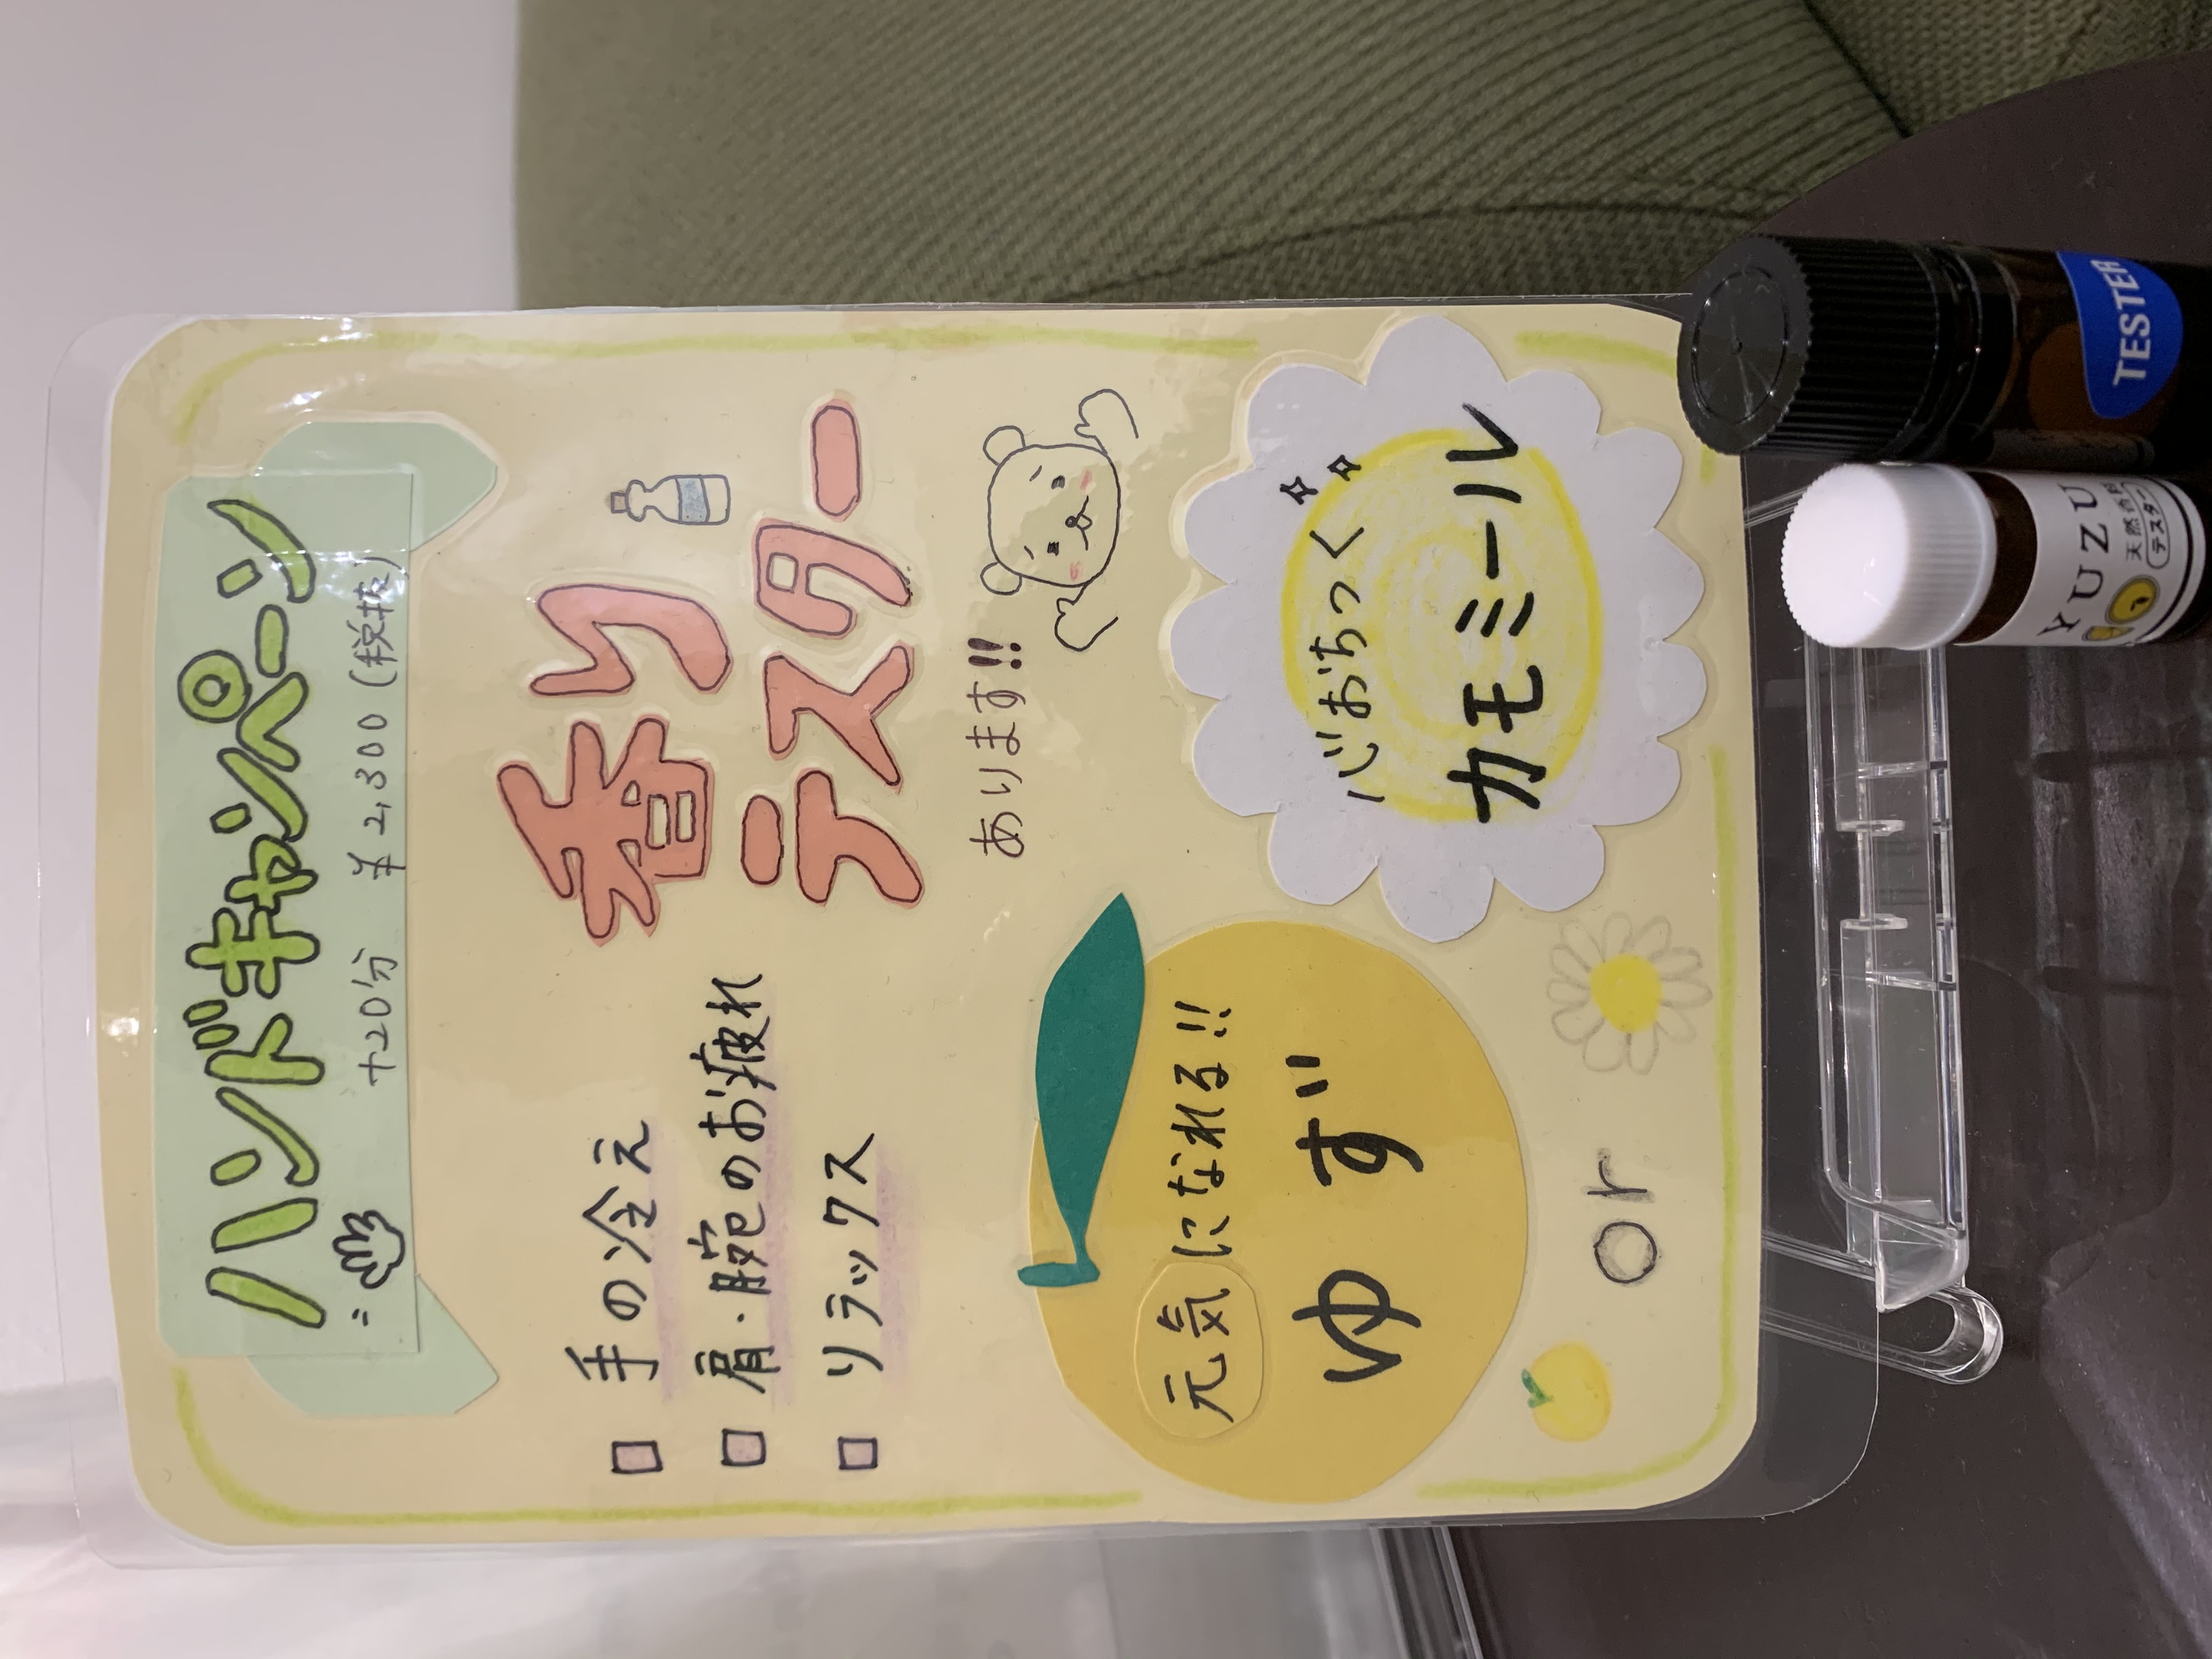 ハンドキャンペーン
+20分 ¥2,300(税抜)
手の冷え
肩・腕のお疲れ
リラックス
香り
テスター
あります!!
元気になれる!!
ゆず
心おちつく
カモミール
or
YUZU
天然
テスター
TESTER